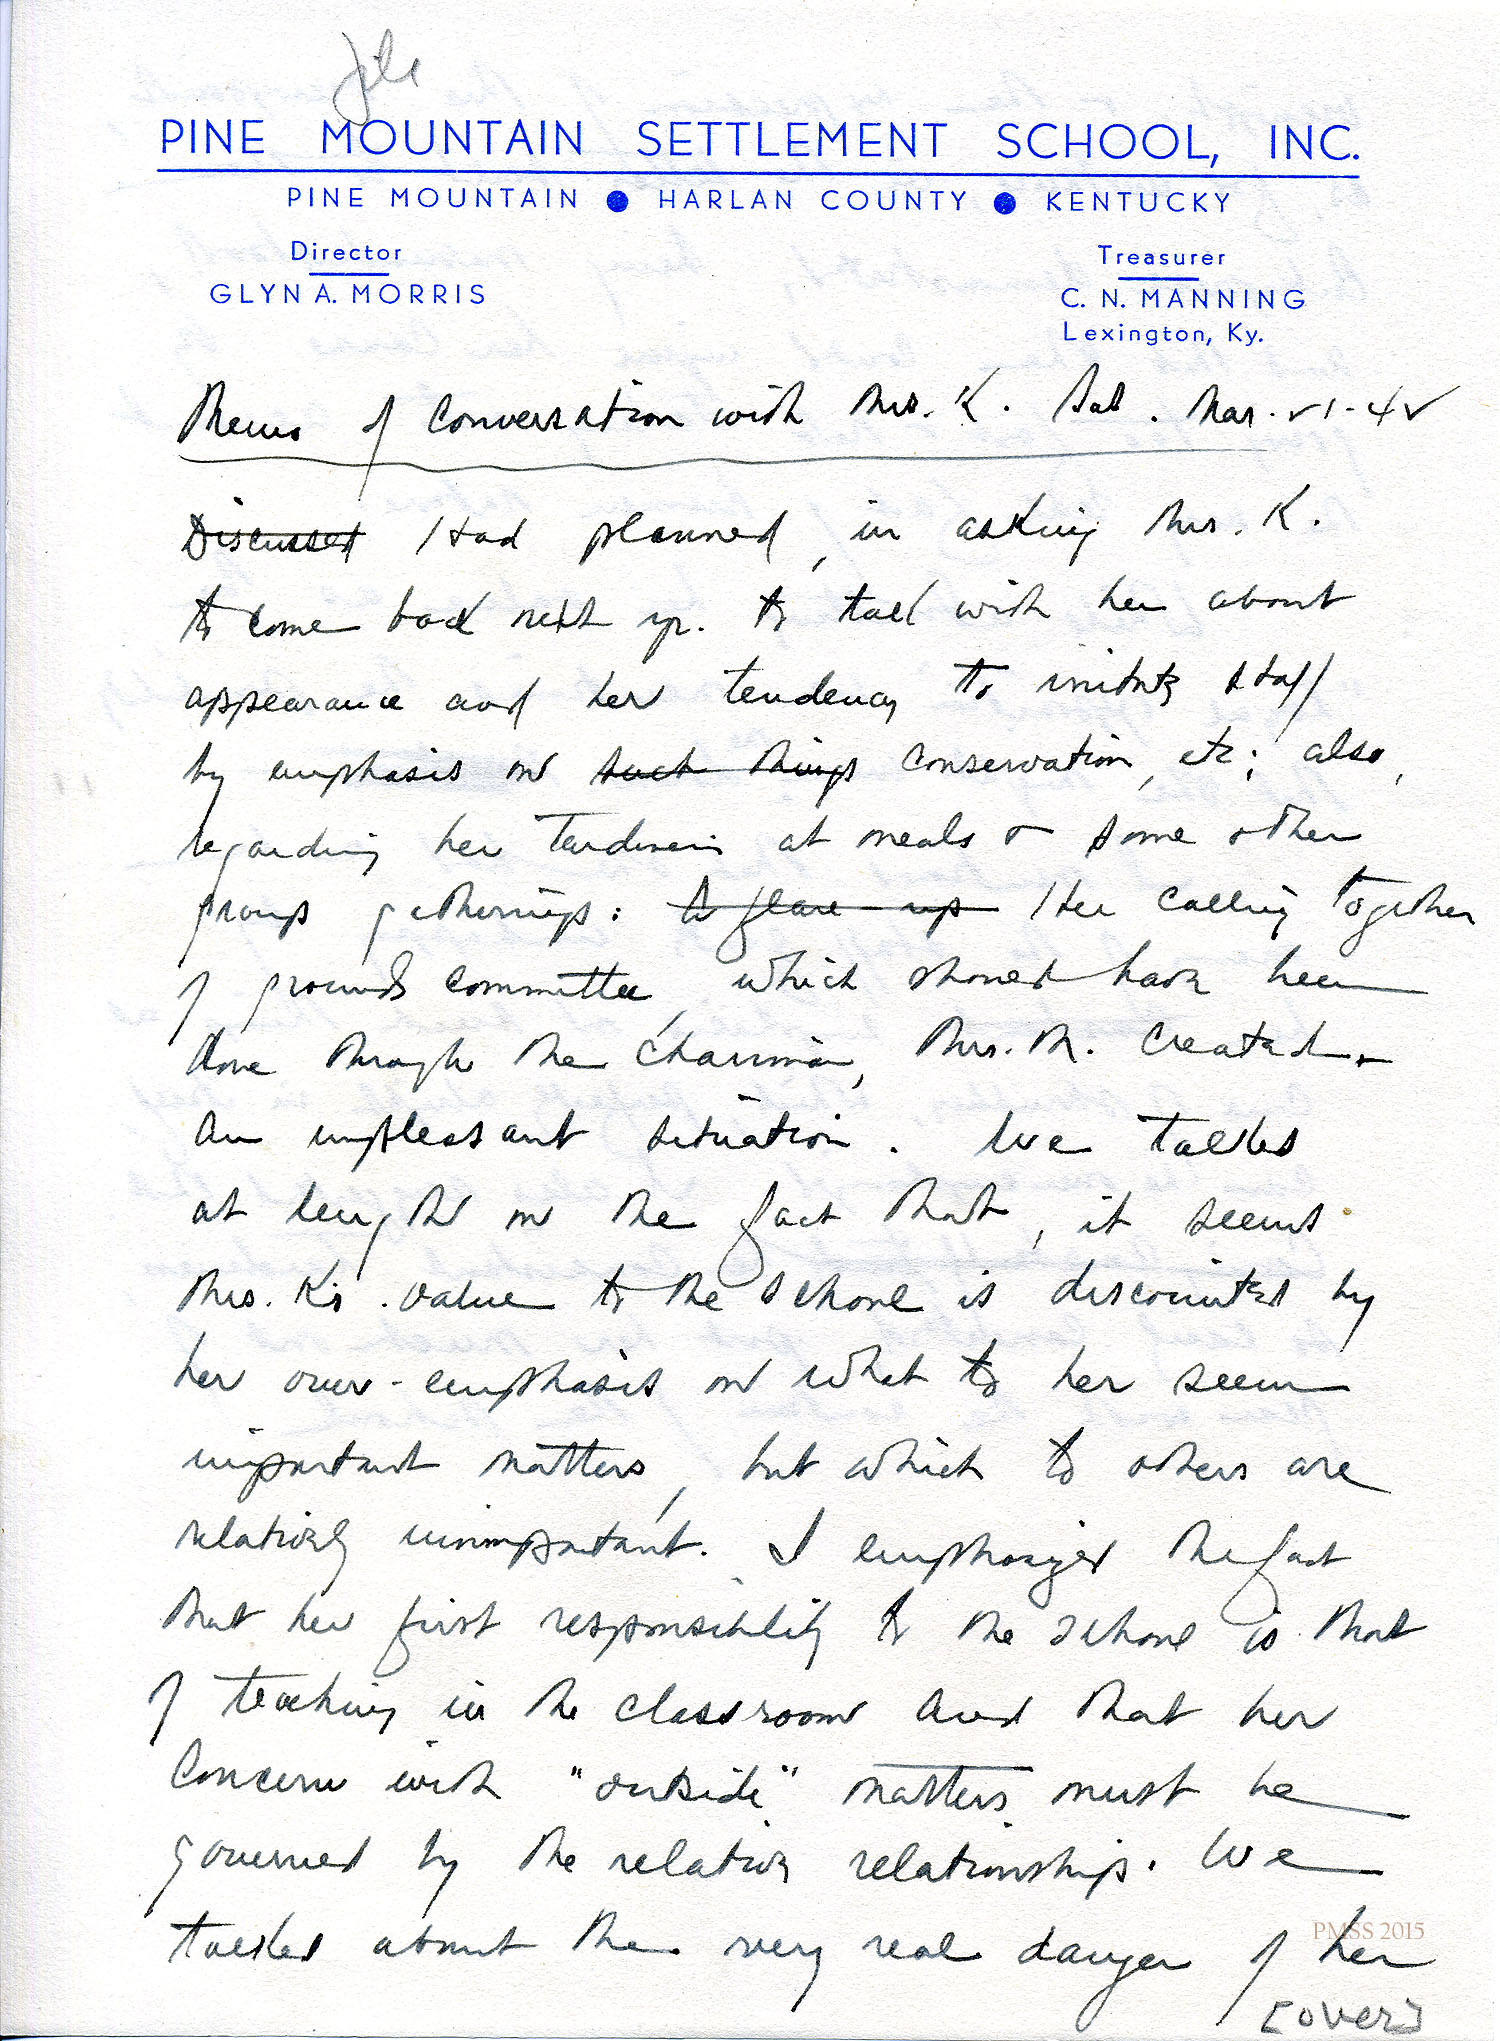 file
PINE MOUNTAIN SETTLEMENT SCHOOL, INC.
PINE MOUNTAIN ● HARLAN COUNTY ● KENTUCKY
Director
GLYN A. MORRIS
Treasurer
C. N. MANNING
Lexington, Ky.
Memo of conversation with Mrs. K. Sat. Mar. 21-42
Discussed Had planned, in asking Mrs. K.
to come back next yr. to talk with her about
appearance and her tendency to irritate staff
by emphasis on such things conservation, etc; also,
regarding her tardiness at meals & some other
group gatherings: A flare-up Her calling together
of grounds committee, which should have been
done through the chairman, Mrs. M. created
an unpleasant situation. We talked
at length on the fact that, it seems
Mrs. K's. value to the school is discounted by
her over-emphasis on what to her seem
important matters, but which to others are
relatively unimportant. I emphasized the fact
that her first responsibility to the school is that
of teaching in the classroom and that her
concern with "outside" matters must be
governed by the relative relationship. We
talked about the very real danger of her
[over]
PMSS 2015